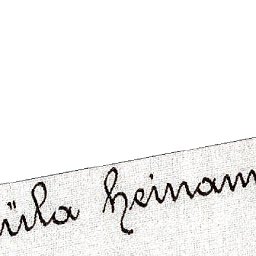 üla heinam